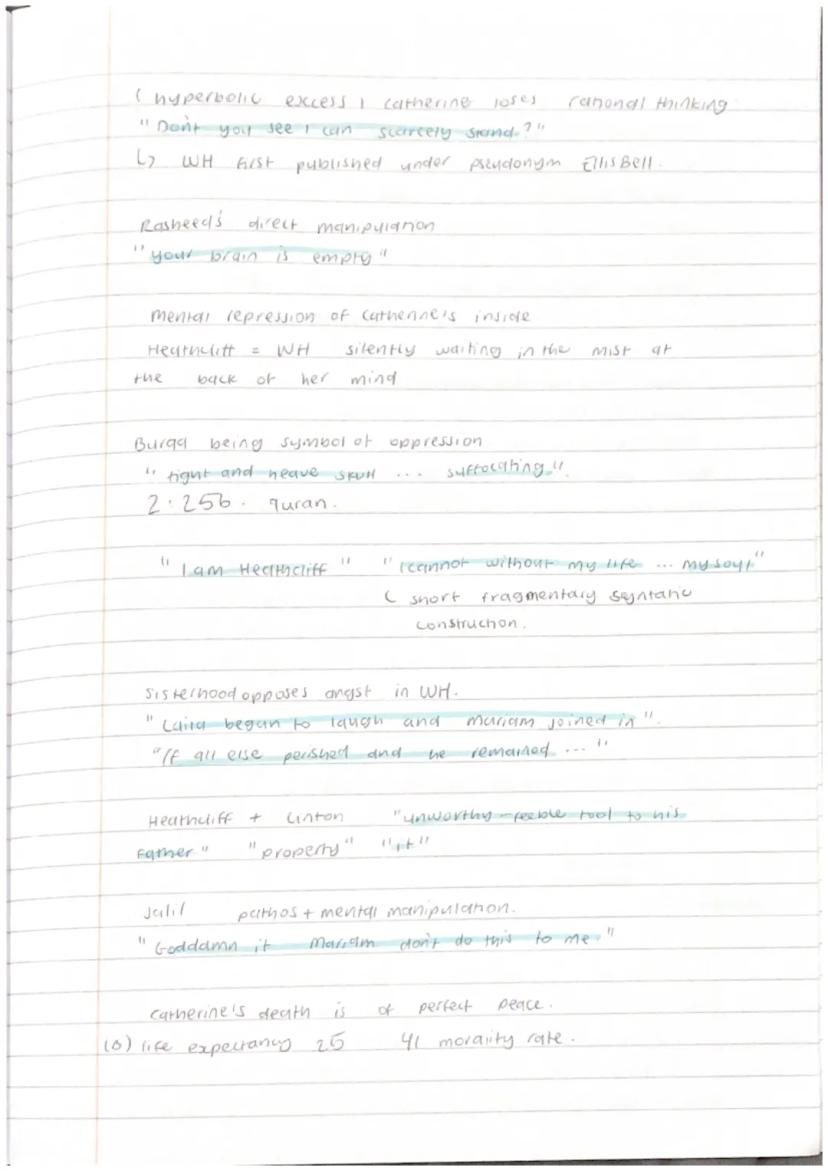 ( hyperbolic excess, catherine loses rational thinking
"Don't you see I can scarcely stand?"
↳ WH first published under pseudonym Ellis Bell.
Rasheed's direct manipulation
"your brain is empty"
mental repression of Catherine's inside
Heathcliff = WH silently waiting in the mist at
the back of her mind
Burqa being symbol of oppression
"tight and heave skull ... suffocating".
2.256. quran.
"I am Heathcliff" "I cannot without my life ... my soul"
( short fragmentary syntatic
construction.
Sisterhood opposes angst in WH.
"Laila began to laugh and mariam joined in".
"If all else perished and he remained ..."
Heathcliff + Linton "unworthy - feeble tool to his
Father" "property" "it"
Jalil pathos + mental manipulation.
"Goddamn it Mariam don't do this to me."
Catherine's death is of perfect peace.
life expectancy 25 41 morality rate.